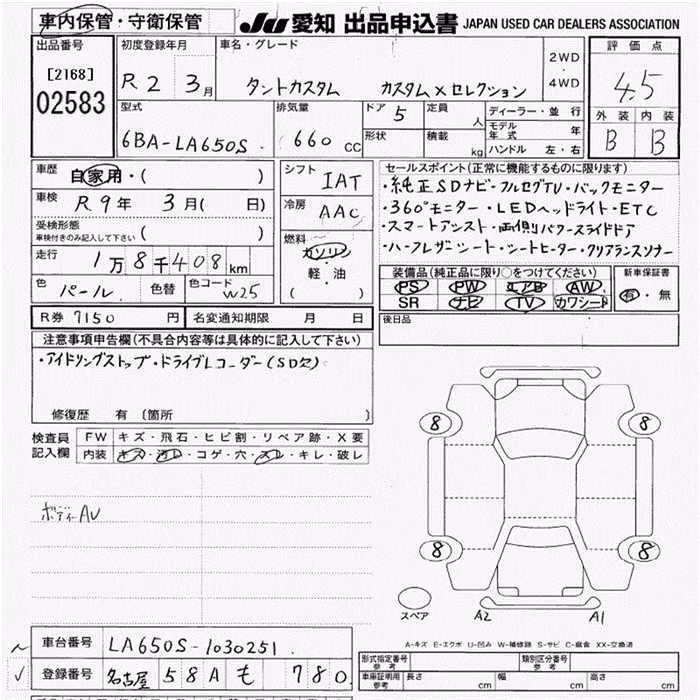 車内保管・守衛保管
JU 愛知 出品申込書 JAPAN USED CAR DEALERS ASSOCIATION
出品番号
[2168]
02583
初度登録年月
R2 3月
車名・グレード
タントカスタム カスタムXセレクション
2WD
・
4WD
評価点
4.5
外装 内装
B B
型式
6BA-LA650S
排気量
660 CC
ドア 5
形状
定員 人
積載 kg
ディーラー・並行
モデル年式 年
ハンドル 左・右
車歴 自家用・( )
車検 R9年 3月( 日)
受検形態
車検付きのみ記入して下さい ( )
走行 1万8千408km
色 パール 色替 色コード W25
シフト IAT
冷房 AAC
燃料
ガソリン
軽・油
( )
セールスポイント(正常に機能するものに限ります)
・純正SDナビ・フルセグTV・バックモニター
・360°モニター・LEDヘッドライト・ETC
・スマートアシスト・両側パワースライドドア
・ハーフレザーシート・シートヒーター・クリアランスソナー
装備品(純正品に限り○をつけてください)
PS PW エアB AW
SR ナビ TV カワシート
新車保証書
有・無
R券 7150 円 名変通知期限 月 日
後日品
注意事項申告欄(不具合内容等は具体的に記入して下さい)
・アイドリングストップ・ドライブレコーダー(SD欠)
修復歴 有 〔箇所 〕
検査員記入欄
FW キズ・飛石・ヒビ割・リペア跡・X要
内装 キズ・汚レ・コゲ・穴・スレ・キレ・破レ
ボディーAU
8 8
8 8
スペア
A2 A1
A-キズ E-エクボ U-凹み W-補修跡 S-サビ C-腐食 XX-交換済
車台番号 LA650S-1030251
登録番号 名古屋 58A も 780
型式指定番号 参考 類別区分番号 参考
車庫証明用 参考 長さ cm 幅 cm 高さ cm